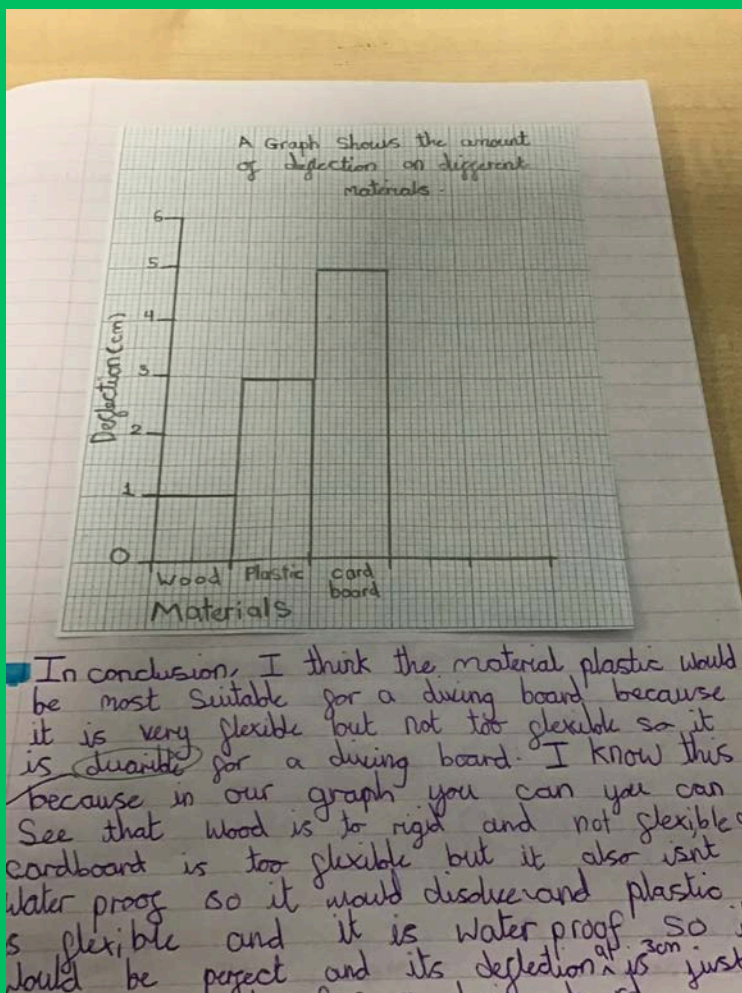 A Graph Shows the amount
of deflection on different
materials.
6
5
4
3
2
1
0
Deflection (cm)
Wood Plastic card
board
Materials
In conclusion, I think the material plastic would
be most suitable for a diving board because
it is very flexible but not too flexible so it
is duarible for a diving board. I know this
because in our graph you can you can
See that wood is to rigid and not flexible
cardboard is too flexible but it also isnt
water proof so it would disolve and plastic
is flexible and it is water proof so
would be perfect and its deflection at 3cm is just